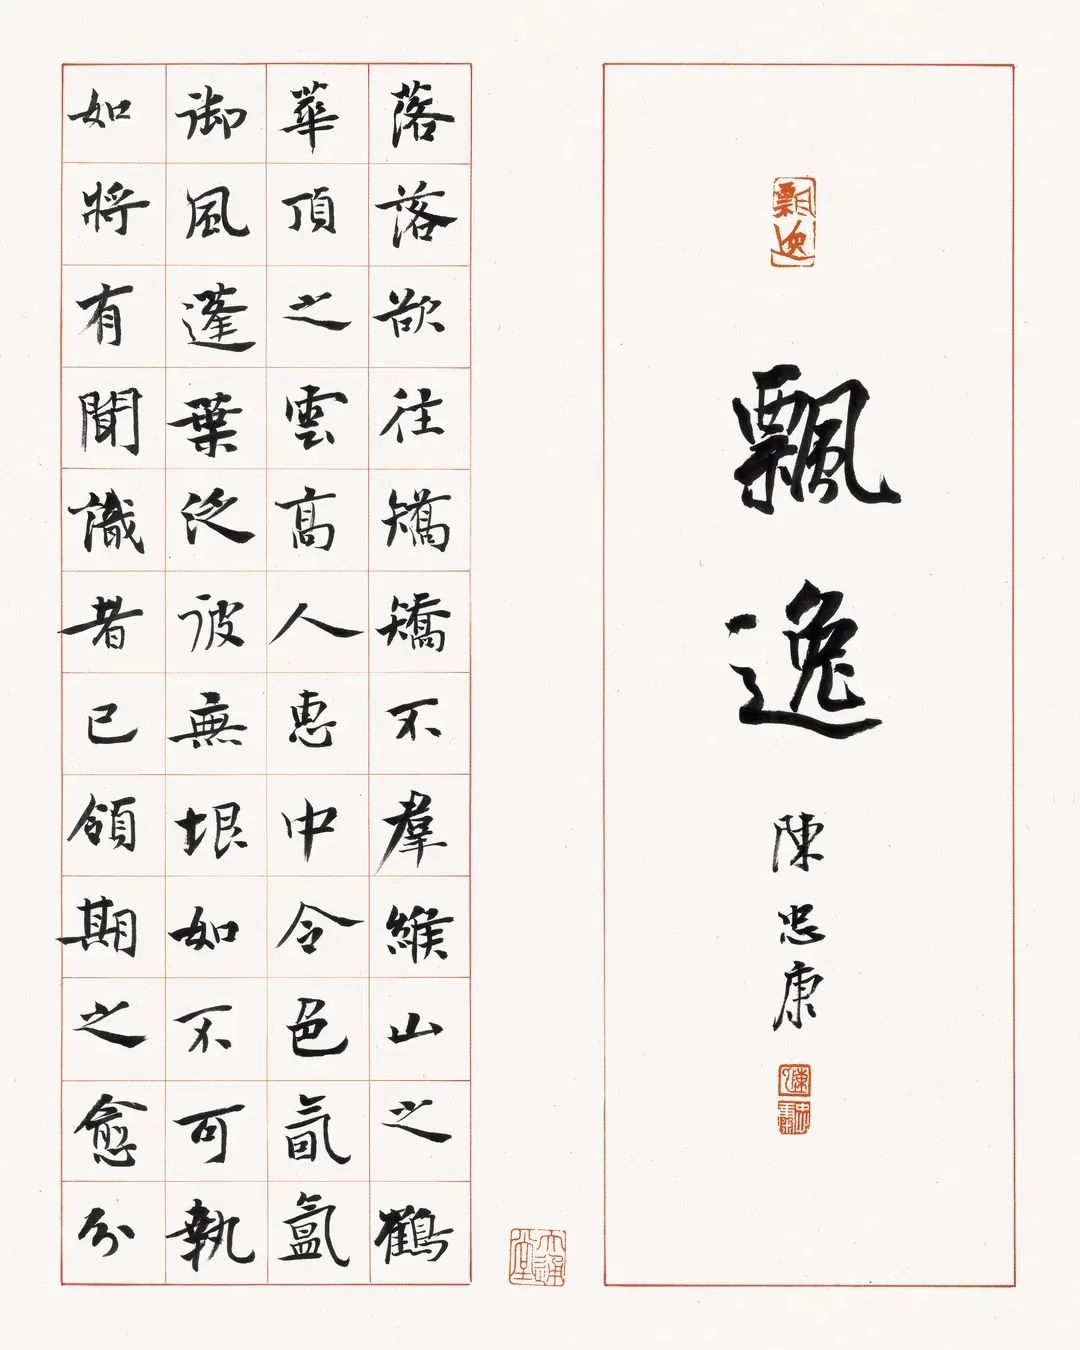 飄逸
飄逸
陳忠康
落落欲往矯矯不羣緱山之鶴
華頂之雲高人惠中令色氤氳
御風蓬葉泛彼無垠如不可執
如將有聞識者已領期之愈分